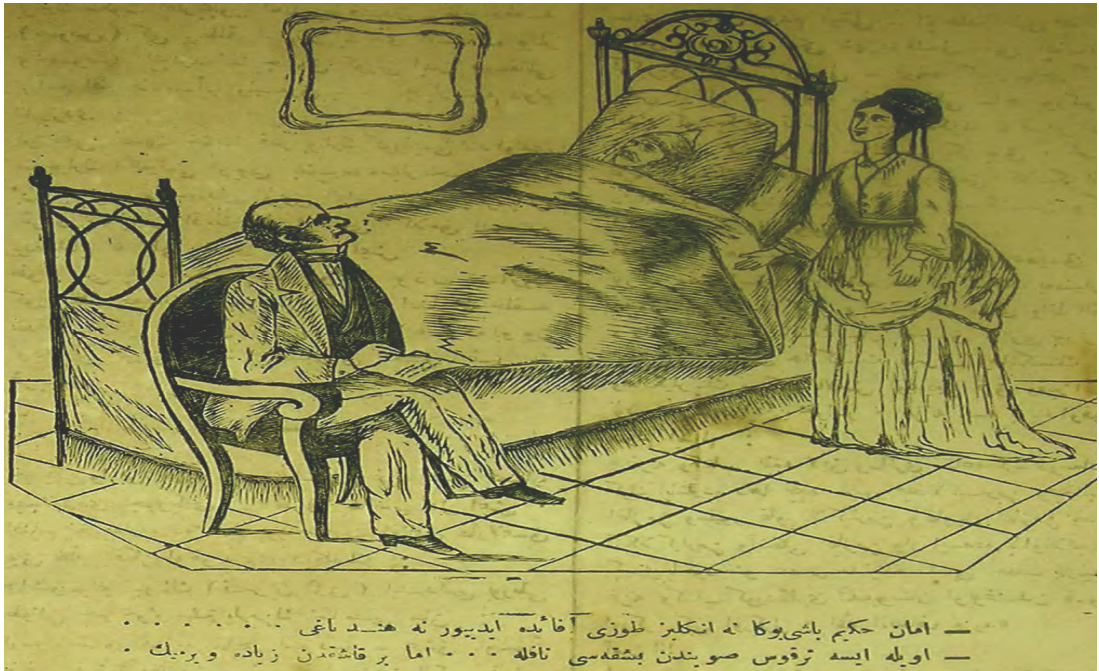 — امان حكیم باشی بوكا نه انكلیز طوزی فائده ایدییور نه هند یاغی . . . . . . .
— اویله ایسه ترقوس صویندن بشقه‌سی نافله . . . اما بر قاشقدن زیاده ویرمیك .